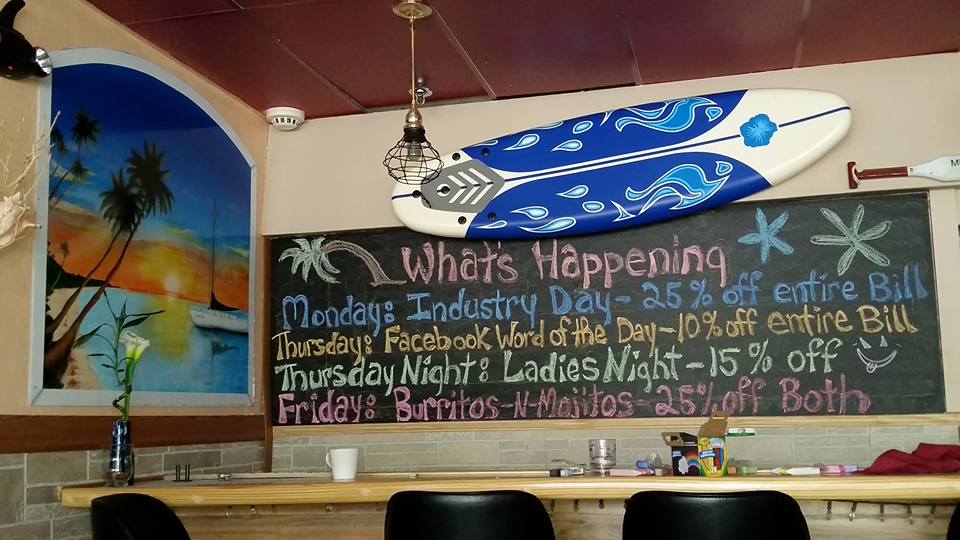 What's Happening
Monday: Industry Day - 25% off entire Bill
Thursday: Facebook Word of the Day - 10% off entire Bill
Thursday Night: Ladies Night - 15% off
Friday: Burritos-N-Mojitos - 25% off Both